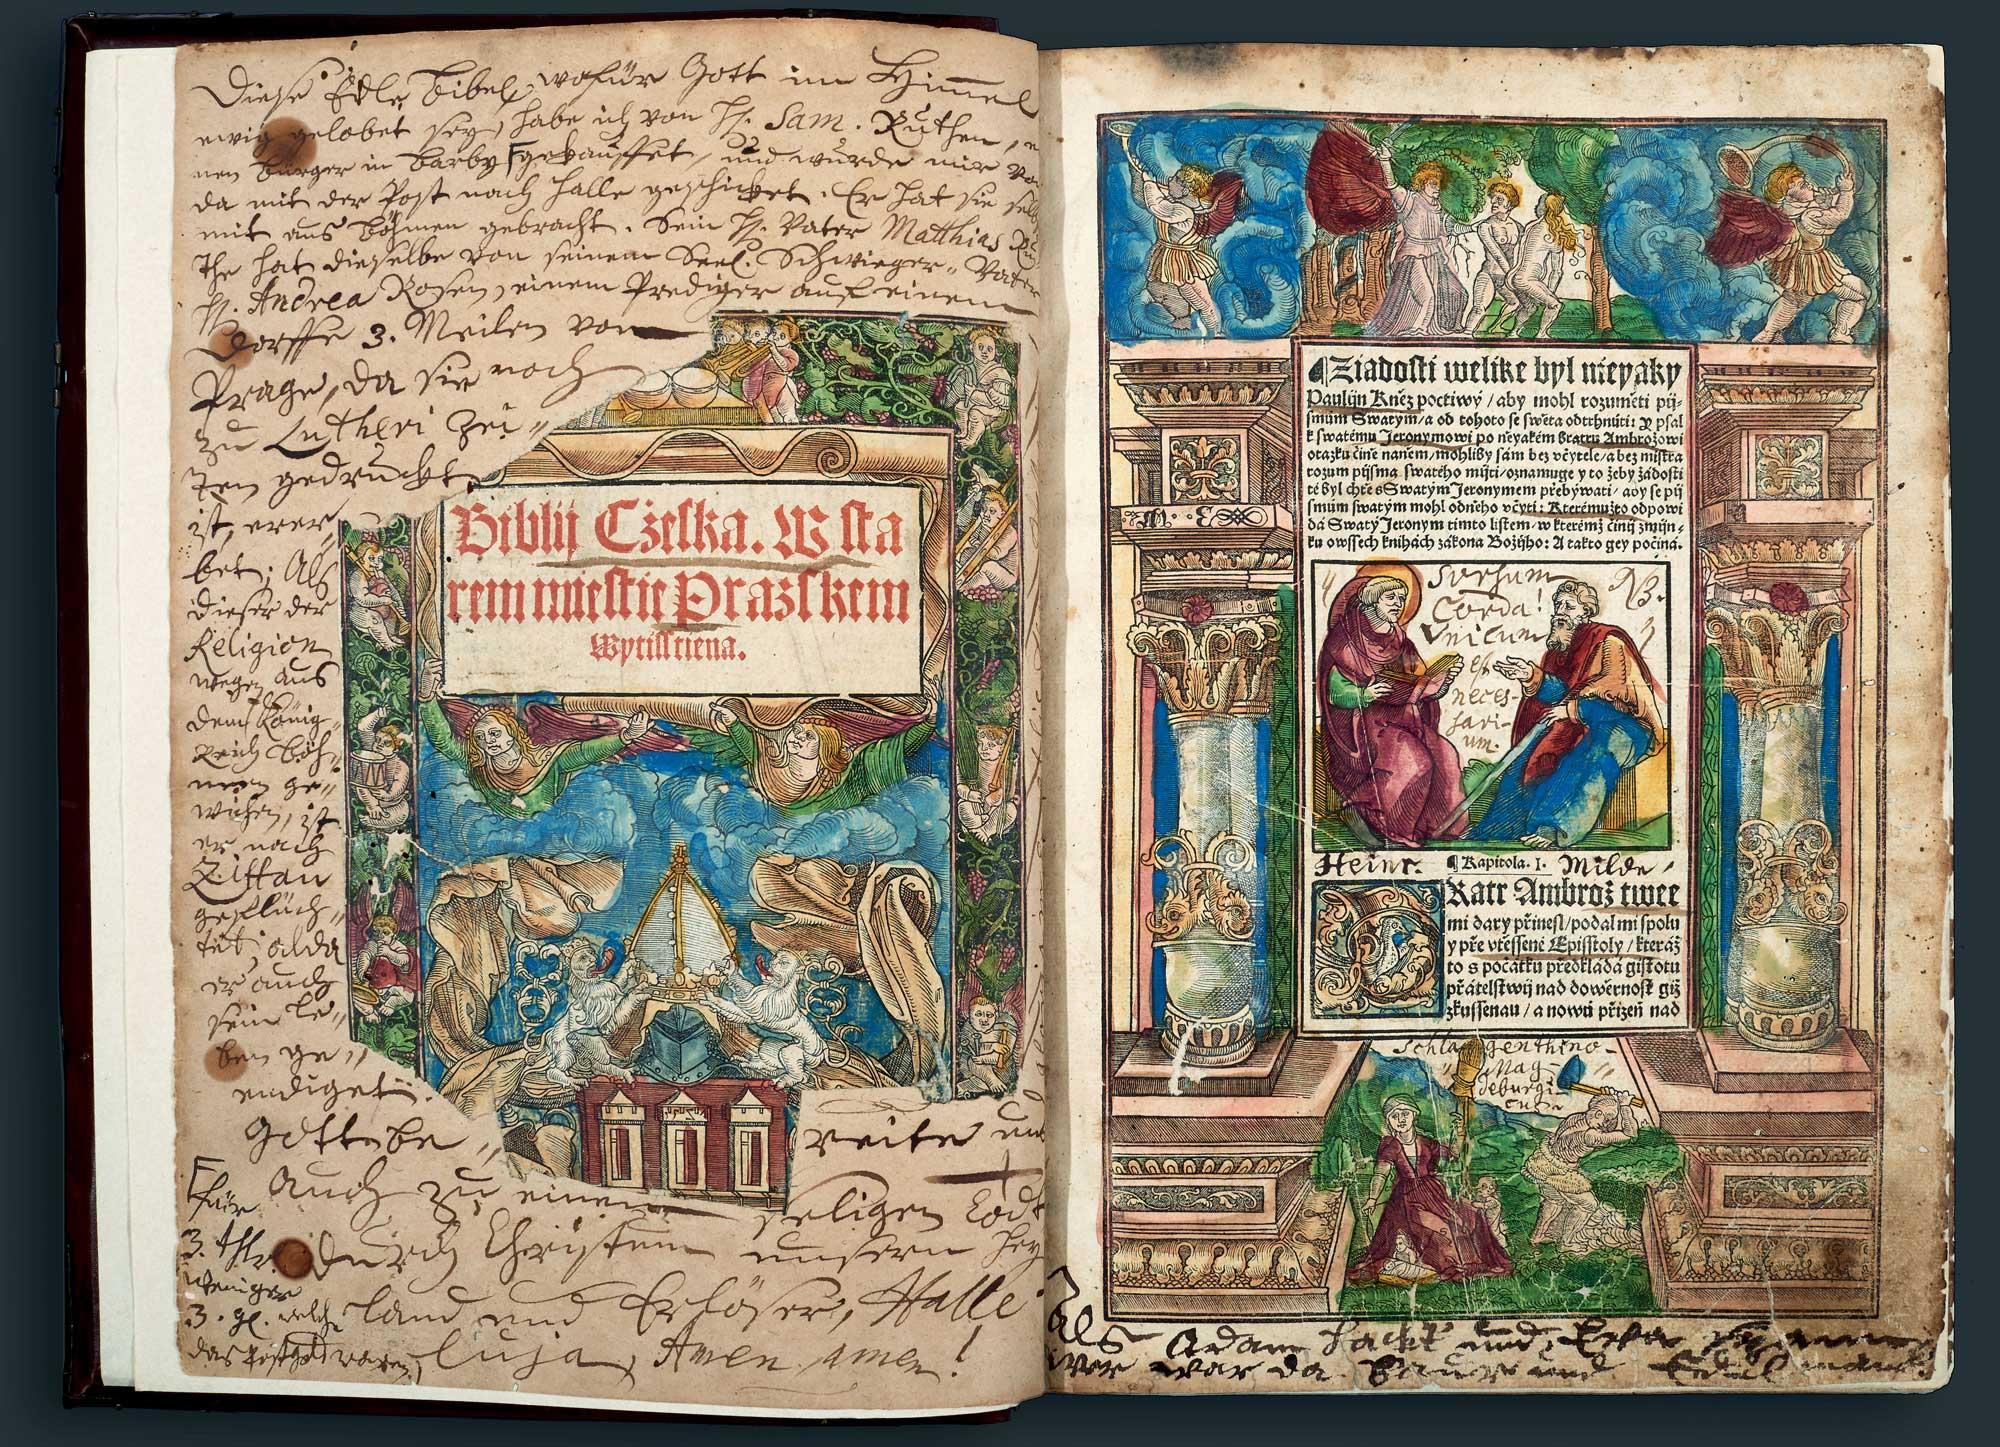 Diese Edle Bibel, wofür Gott im Himmel
ewig gelobet sey, habe ich von H. Sam. Ruthen,
nen bürger in Barby gekauffet, und wurde mir von
da mit der Post nach Halle geschicket. Er hat sie selbst
mit aus Böhmen gebracht. Sein H. Vater Matthias Ru
the hat dieselbe von seinem Seel. Schwieger-Vater
H. Andrea Rosen, einem Prediger auf einem
Dorffe 3. Meilen von
Prage, da sie noch
zu Lutheri Zei-
ten gedruckt
ist, erer
bet; Als
dieser der
Religion
wegen aus
dem König-
Reich Böh-
men ge-
wichen, ist
er nach
Zittau
geflüch-
tet, alda
er auch
sein Le-
ben ge-
endiget.
Gott be-reite
auch zu einem seligen Tod
durch Christum unsern Hey
land und Erlöser, Halle
luja, Amen, amen!
für
3. thlr.
weniger
3. gl. welche
das Postgeld waren
Biblij Cżeska. W sta
rem miestie Prażskem
Wytisstiena.
¶ Ziadosti welike byl nieyaky
Paulijn Kněz poctiwý / aby mohl rozuměti pij-
smům Swatým / a od tohoto se swěta odtrhnúti: Y psal
k swatému Jeronymowi po něyakém bratru Ambrožowi
otazku čině naňem / mohliby sám bez včytele / a bez mistra
rozum pijsma swatého mijti / oznamuge y to žeby žádosti
té byl chtě s Swatým Jeronymem přebýwati / aby se pij
smům swatým mohl odněho včyti: Kterémužto odpowi
dá Swatý Jeronym timto listem / w kterémž činij zmijn-
ku owssech knihách zákona Božijho: A takto gey počiná.
Sursum NB.
Corda!
Unicum
est
neces-
sari-
um.
Heinr. ¶ Kapitola. I. Milde,
Ratr Ambrož twee
mi dary přinesl / podal mi spolu
y pře vtěssené Episstoly / kteráž
to s počátku předkládá gistotu
přátelstwij nad dowěrnost giž
zkussenau / a nowú přijzeň nad
Schlagenthino-
Mag-
deburgi
cus.
Als Adam hackt und Eva spann
wer war da Bauer und Edelmann?